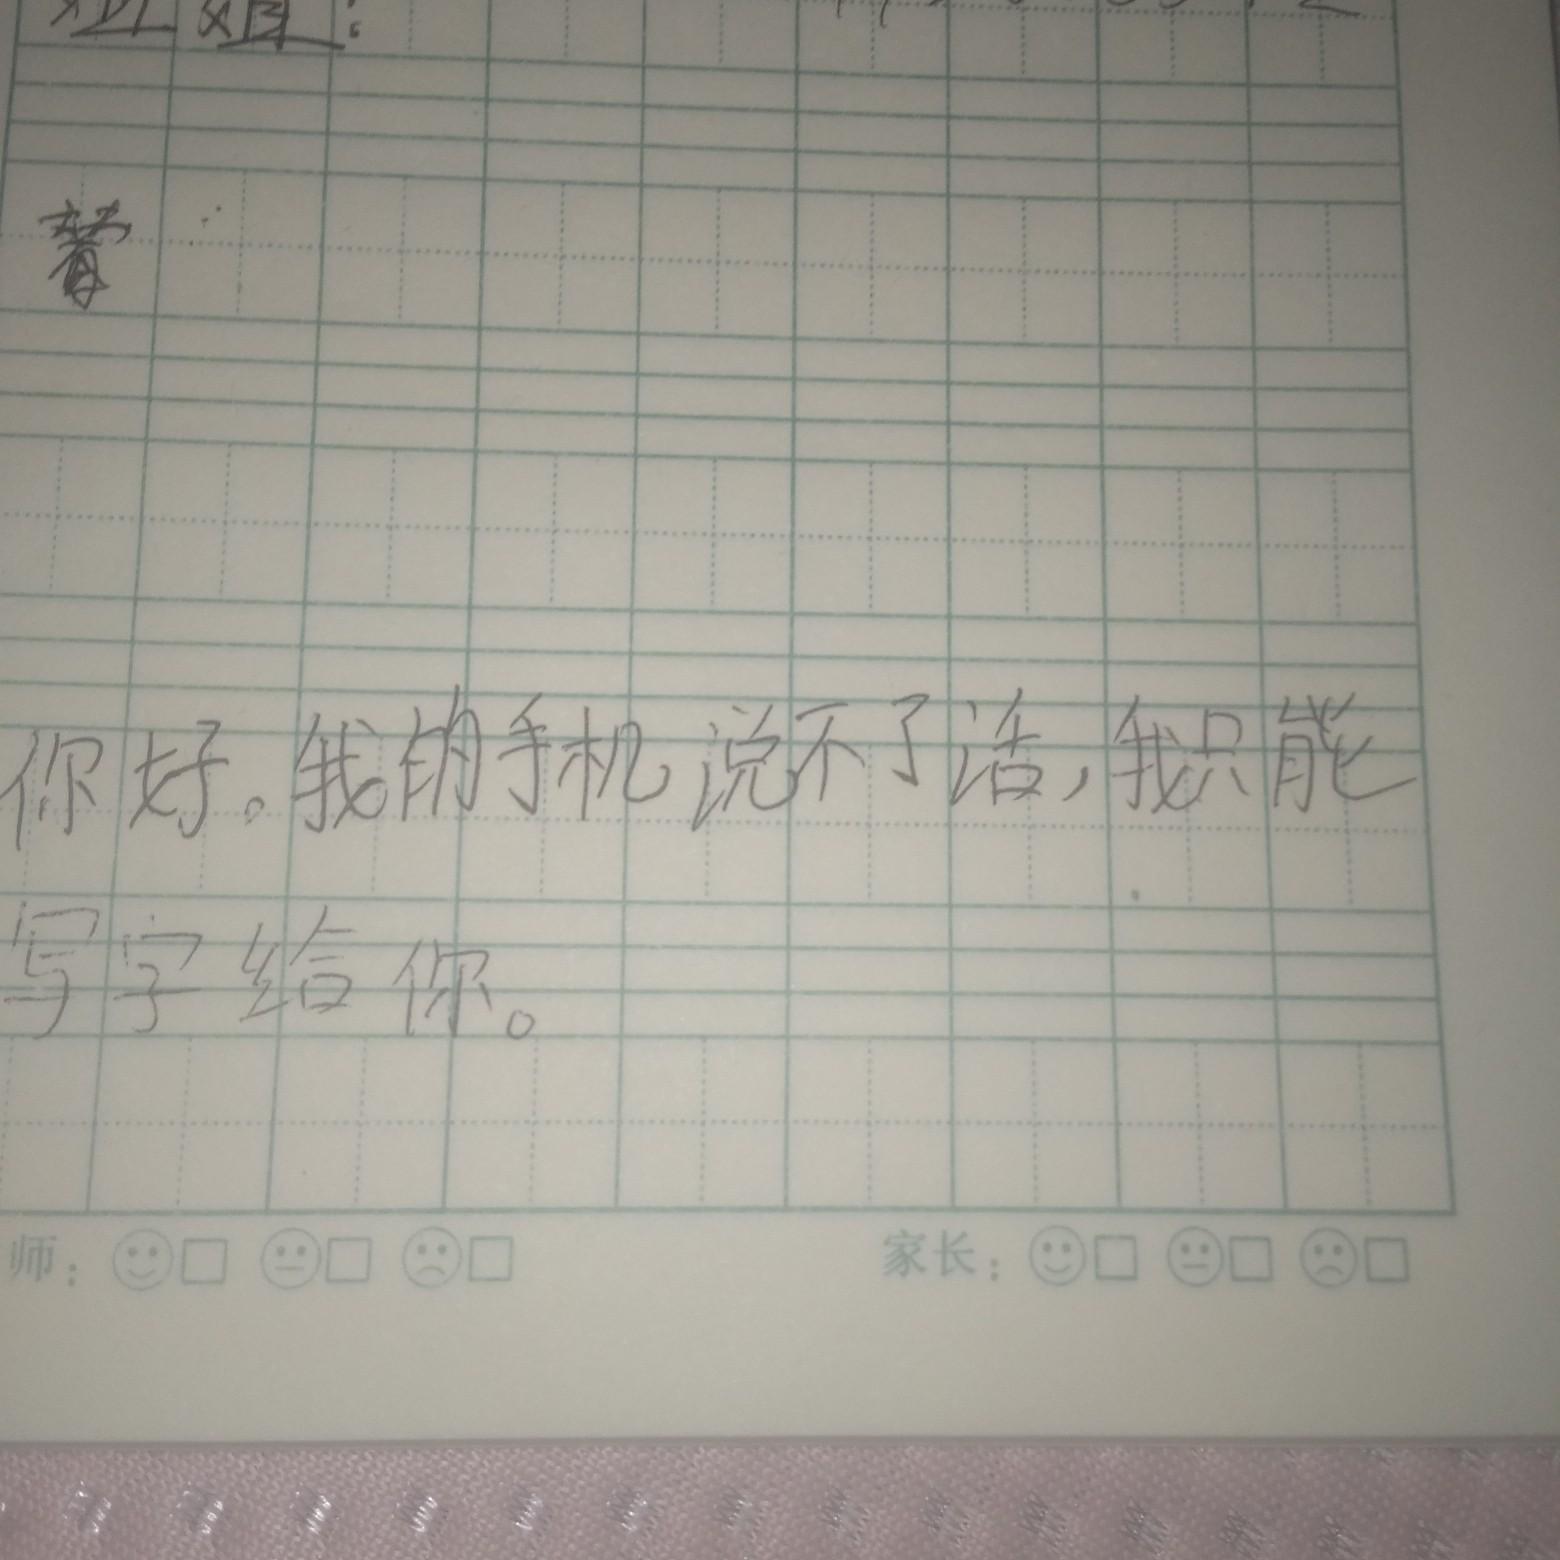 你好。我的手机说不了话，我只能
写字给你。
师：
家长：